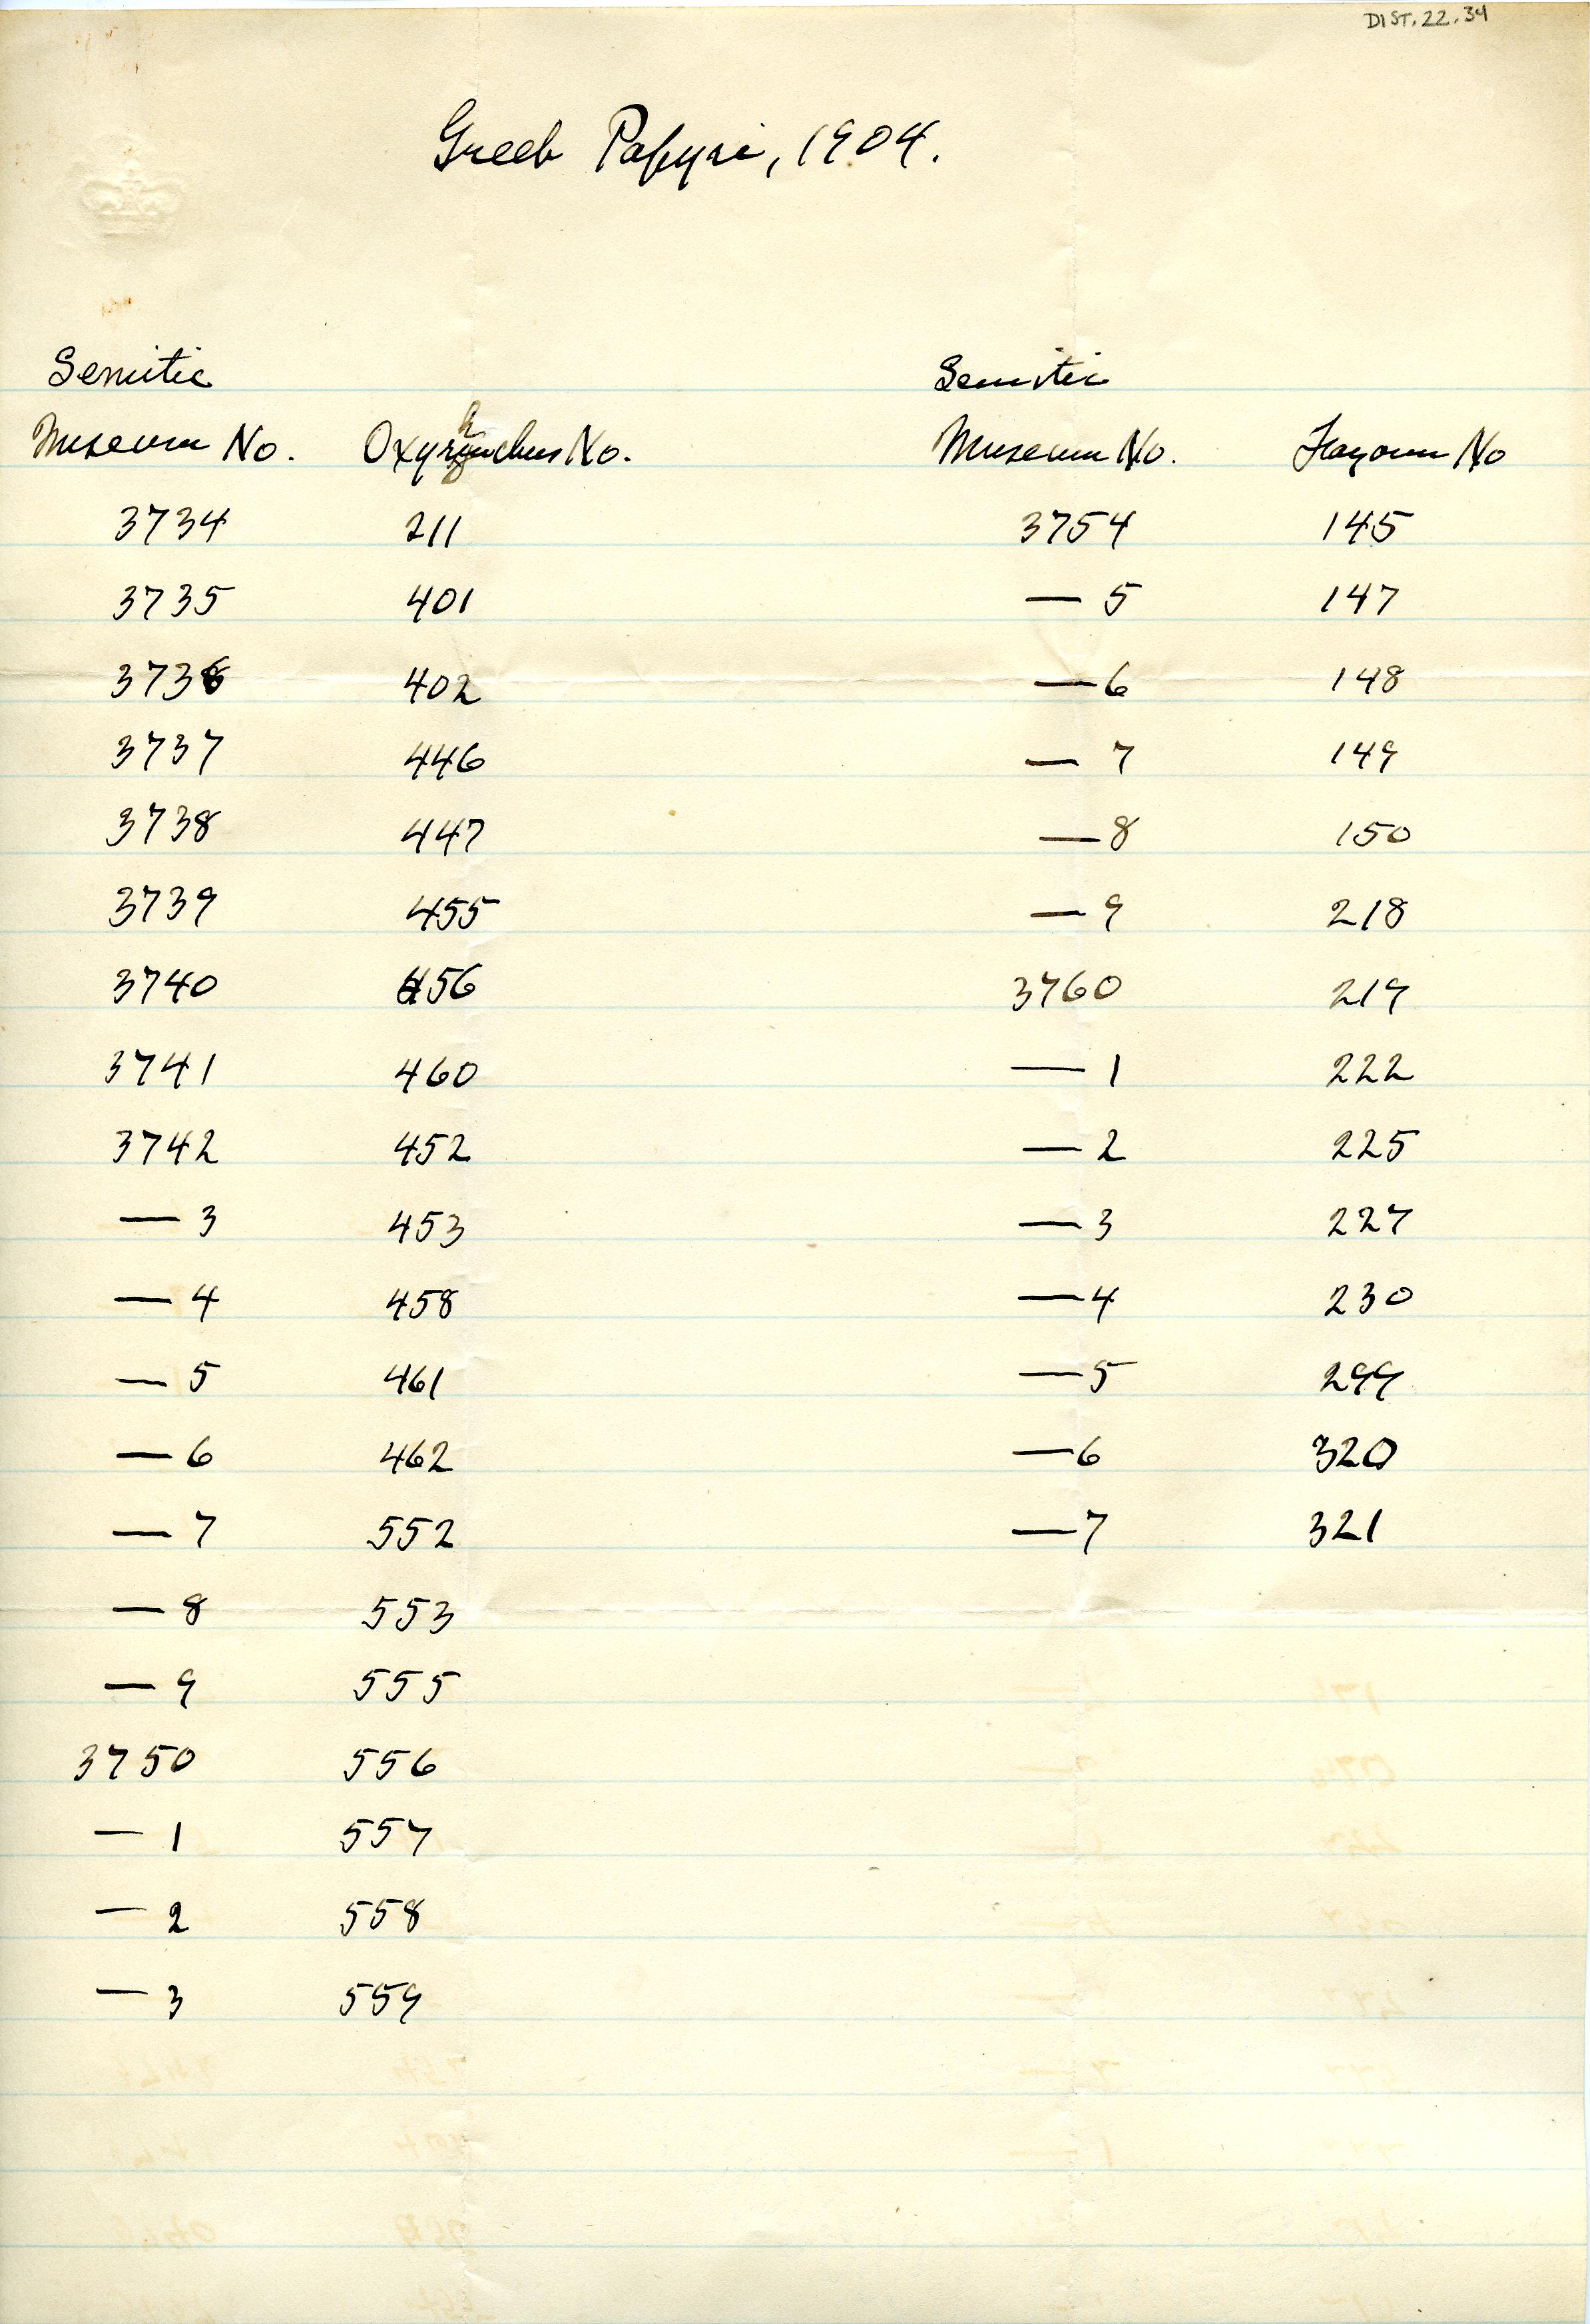 DIST. 22. 34
Greek Papyri, 1904.
Semitic Semitic
Museum No. Oxyrhynchus No. Museum No. Fayoum No
3734 211 3754 145
3735 401 — 5 147
3736 402 — 6 148
3737 446 — 7 149
3738 447 — 8 150
3739 455 — 9 218
3740 456 3760 219
3741 460 — 1 222
3742 452 — 2 225
— 3 453 — 3 227
— 4 458 — 4 230
— 5 461 — 5 299
— 6 462 — 6 320
— 7 552 — 7 321
— 8 553
— 9 555
3750 556
— 1 557
— 2 558
— 3 559